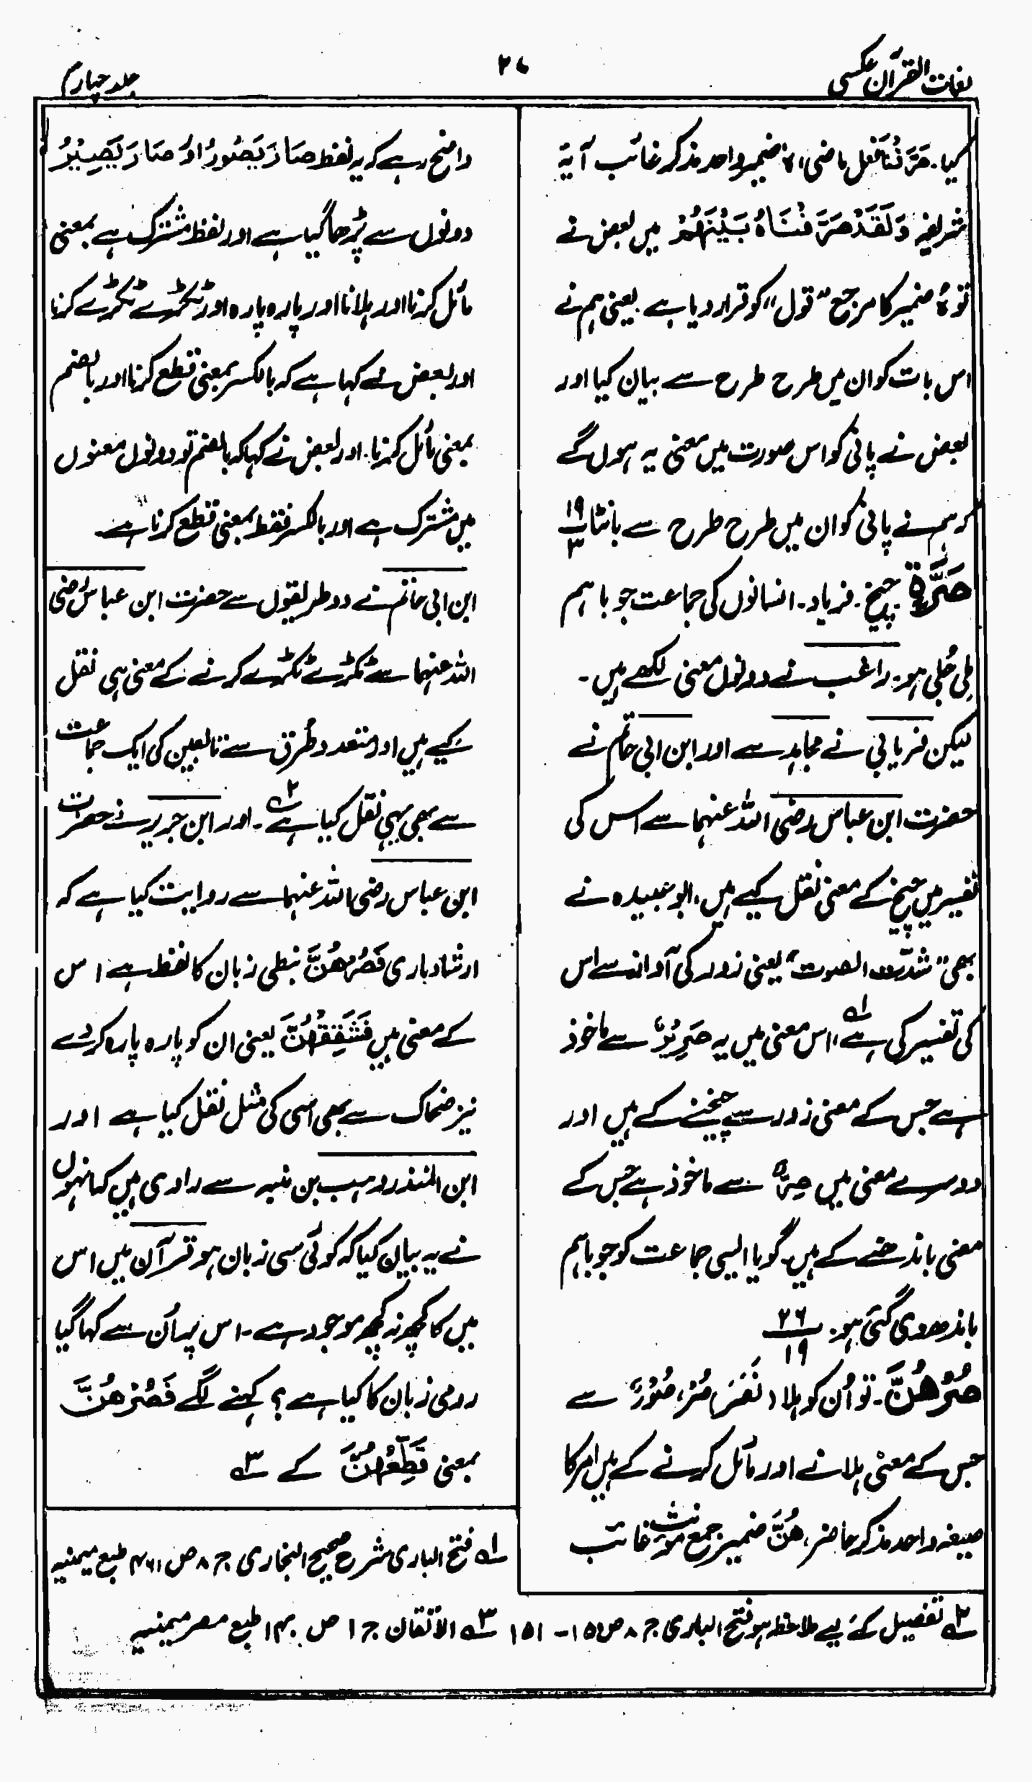 لغات القرآن عکسی
۲۷
جلد چہارم
کیا۔ صَرَّفْنَا فعل ماضی، ہٗ ضمیر واحد مذکر غائب آیۃ
شریفہ وَلَقَدْ صَرَّفْنَاہُ بَیْنَہُمْ میں بعض نے
تو ہٗ ضمیر کا مرجع ”قول“ کو قرار دیا ہے یعنی ہم نے
اس بات کو ان میں طرح طرح سے بیان کیا اور
بعض نے پانی کو اس صورت میں معنی یہ ہوں گے
کہ ہم نے پانی کو ان میں طرح طرح سے بانٹا ۱۹/۳
صَرَّۃٍ چیخ۔ فریاد۔ انسانوں کی جماعت جو باہم
ملی جُلی ہو۔ راغب نے دونوں معنی لکھے ہیں۔
لیکن فریابی نے مجاہد سے اور ابن ابی حاتم نے
حضرت ابن عباس رضی اللہ عنہما سے اس کی
تفسیر میں چیخ کے معنی نقل کیے ہیں، ابو عبیدہ نے
بھی ”شدّت الصوت“ یعنی زور کی آواز سے اس
کی تفسیر کی ہے ۱ے، اس معنی میں یہ صَرِیْرٌ سے ماخوذ
ہے جس کے معنی زور سے چیخنے کے ہیں اور
دوسرے معنی میں صِرَّۃٌ سے ماخوذ ہے جس کے
معنی باندھنے کے ہیں۔ گویا ایسی جماعت کو جو باہم
باندھ دی گئی ہو۔ ۲۶/۱۹
صُرْہُنَّ۔ تو اُن کو ہلا (نَصَرَ) صُرْ، صَوْرٌ سے
جس کے معنی ہلانے اور مائل کرنے کے ہیں امر کا
صیغہ واحد مذکر حاضر، ہُنَّ ضمیر جمع مونث غائب
واضح رہے کہ یہ لفظ صَارَ یَصُورُ اور صَارَ یَصِیْرُ
دونوں سے پڑھا گیا ہے اور لفظ مشترک ہے بمعنی
مائل کرنا اور ہلانا اور پارہ پارہ اور ٹکڑے ٹکڑے کرنا
اور بعض نے کہا ہے کہ بالکسر بمعنی قطع کرنا اور بالضم
بمعنی مائل کرنا۔ اور بعض نے کہا کہ بالضم تو دونوں معنوں
میں مشترک ہے اور بالکسر فقط بمعنی قطع کرنا ہے۔
ابن ابی حاتم نے دو طریقوں سے حضرت ابن عباس رضی
اللہ عنہما سے ٹکڑے ٹکڑے کرنے کے معنی ہی نقل
کیے ہیں اور متعدد طُرق سے تابعین کی ایک جماعت
سے بھی یہی نقل کیا ہے ۲ے۔ اور ابن جریر نے حضرت
ابن عباس رضی اللہ عنہما سے روایت کیا ہے کہ
ارشاد باری فَصُرْہُنَّ نبطی زبان کا لفظ ہے اس
کے معنی ہیں فَشَقِّقْہُنَّ یعنی ان کو پارہ پارہ کر دے
نیز ضحاک سے بھی اسی کی مثل نقل کیا ہے اور
ابن المنذر وہب بن منبہ سے راوی ہیں کہ انہوں
نے یہ بیان کیا کہ کوئی سی زبان ہو قرآن میں اس
میں کا کچھ نہ کچھ موجود ہے۔ اس پر اُن سے کہا گیا
رومی زبان کا کیا ہے؟ کہنے لگے فَصُرْہُنَّ
بمعنی قَطِّعْہُنَّ کے ۳ے
۱ے فتح الباری شرح صحیح البخاری ج ۸ ص ۴۶۱ طبع میمنیہ
۲ے تفصیل کے لیے ملاحظہ ہو فتح الباری ج ۸ ص ۱۵۰ - ۱۵۱ ۳ے الاتقان ج ۱ ص ۱۴۰ طبع مصر میمنیہ